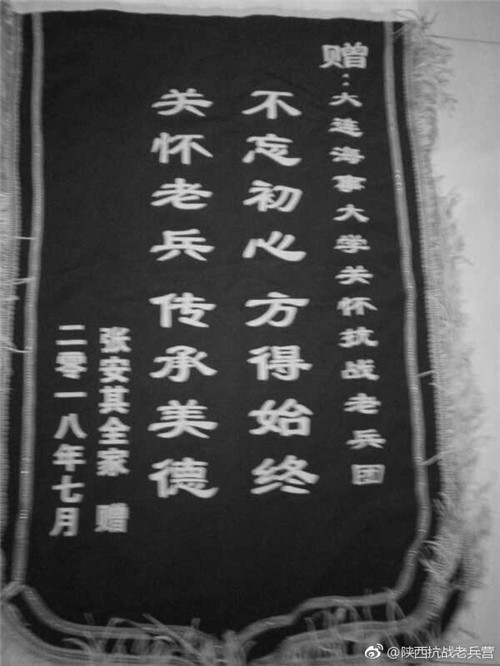 赠：大连海事大学关怀抗战老兵团
不忘初心 方得始终
关怀老兵 传承美德
张安其全家 赠
二零一八年七月
@陕西抗战老兵营